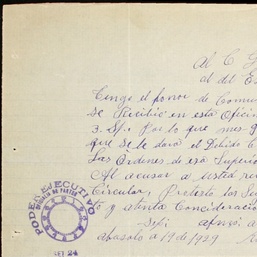 Al C. G
al del Es
Tengo el honor de Comu
se Recibió en esta Oficin
3. Sp. Por lo que mes
que se le dará el Debido C
Las Ordenes de esa Superio
Al acusar a usted re
Circular, protesto los Se
to y atenta Consideracio
Sp. afmo. a
Abasolo a 19 de 1929
PODER EJECUTIVO
24